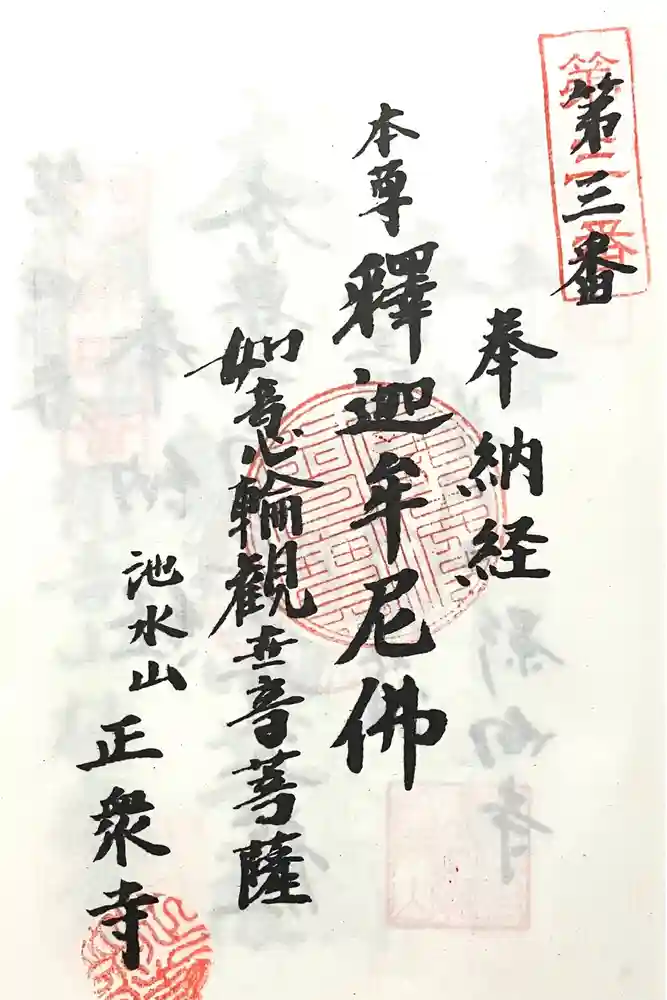 第三番
第三番
奉納経
本尊 釋迦牟尼佛
如意輪観世音菩薩
池水山 正衆寺